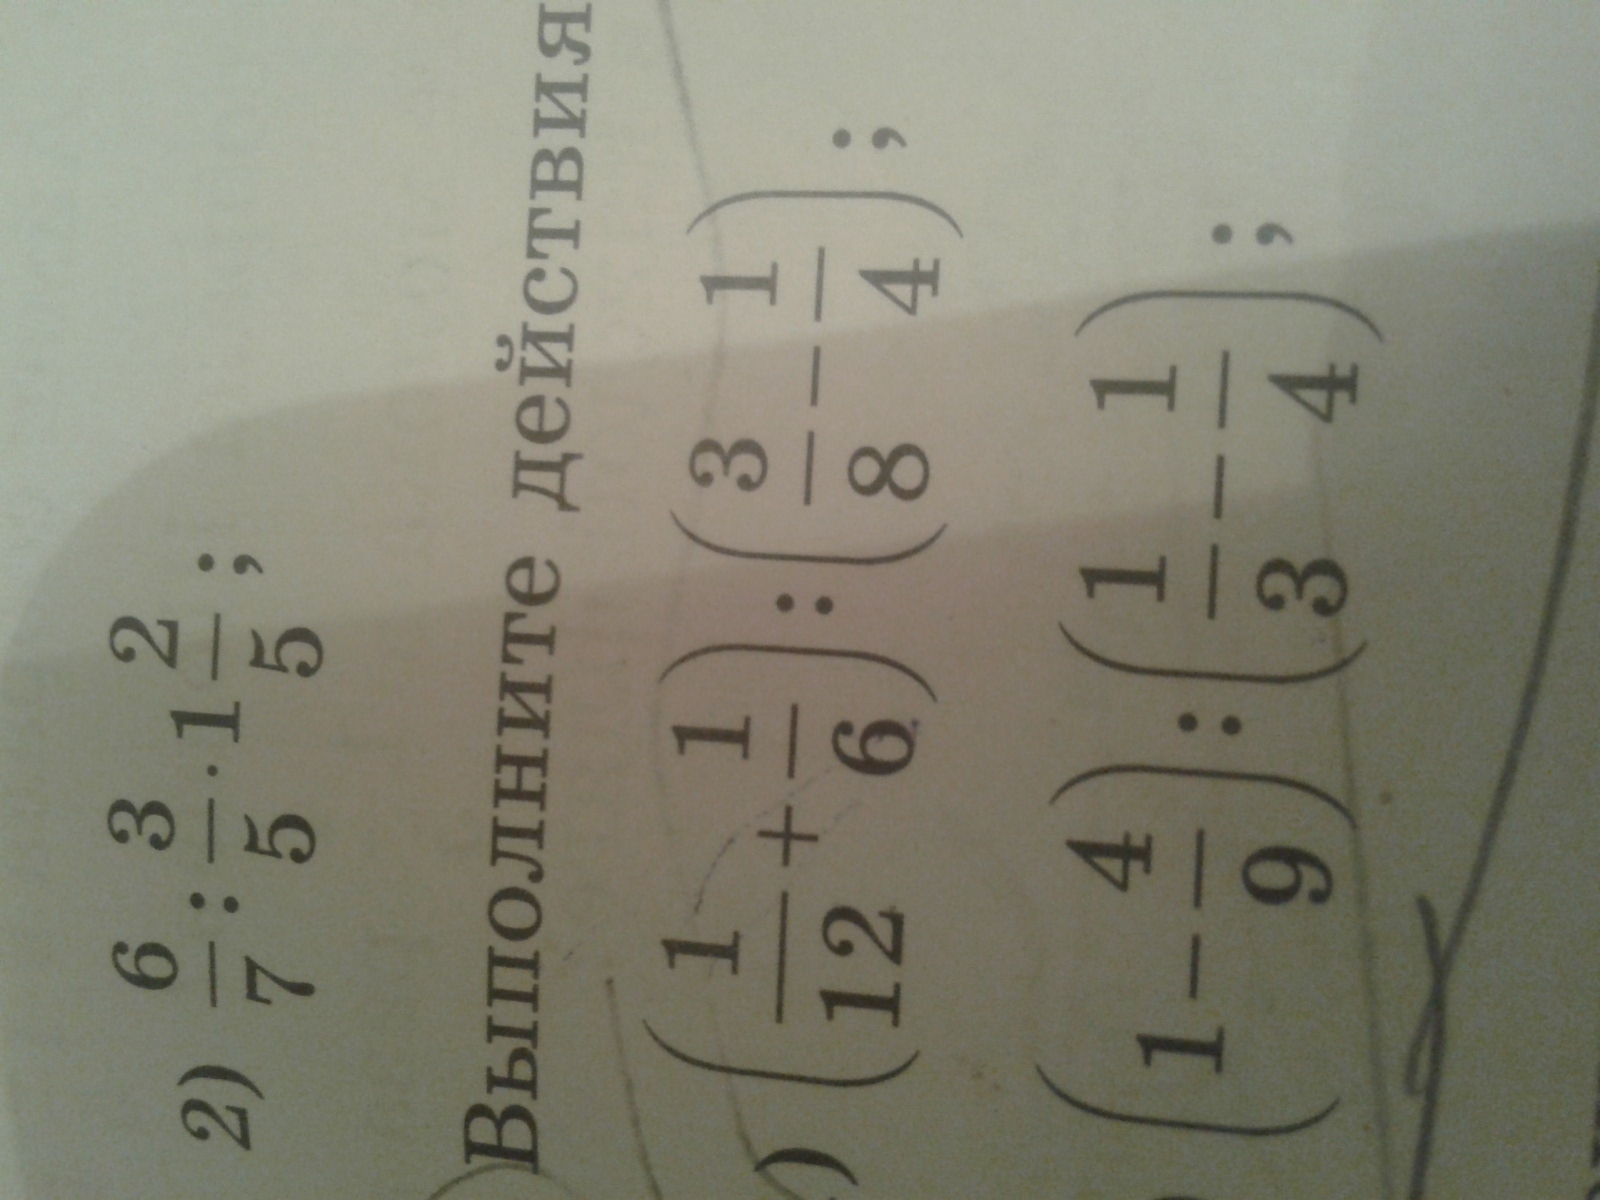 2) 6/7 : 3/5 · 1 2/5 ;
Выполните действия
) (1/12 + 1/6) : (3/8 − 1/4) ;
(1 − 4/9) : (1/3 − 1/4) ;